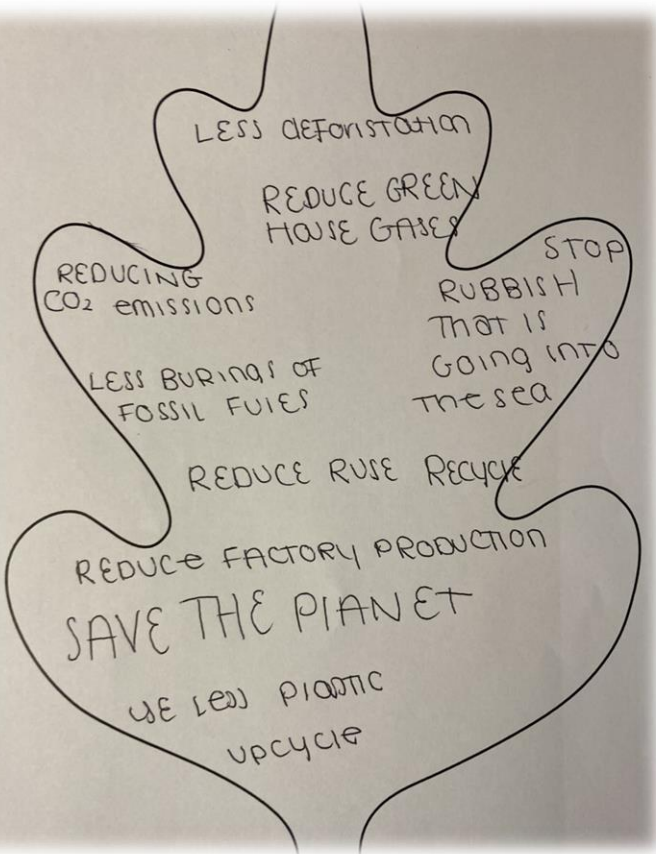 LESS dEForiSTATION
REDUCE GREEN
HOUSE GASES
REDUCING
CO₂ emissions
STOP
RUBBISH
THAT IS
GOING INTO
The sea
LESS BURINGS OF
FOSSIL FUIES
REDUCE RUSE RECYCLE
REDUCE FACTORY PRODUCTION
SAVE THE PLANET
USE LESS PLASTIC
UPCYCLE